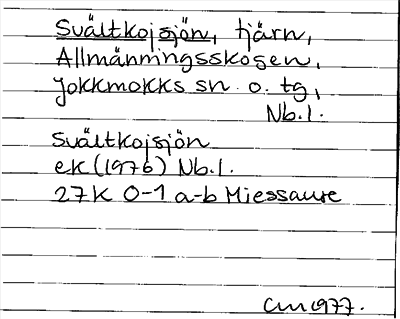 Svältkojsjön, tjärn,
Allmänningsskogen,
Jokkmokks sn. o. tg,
Nb.l.
Svältkojsjön
ek (1976) Nb.l.
27K 0-1 a-b Miessaure
CM 1977.